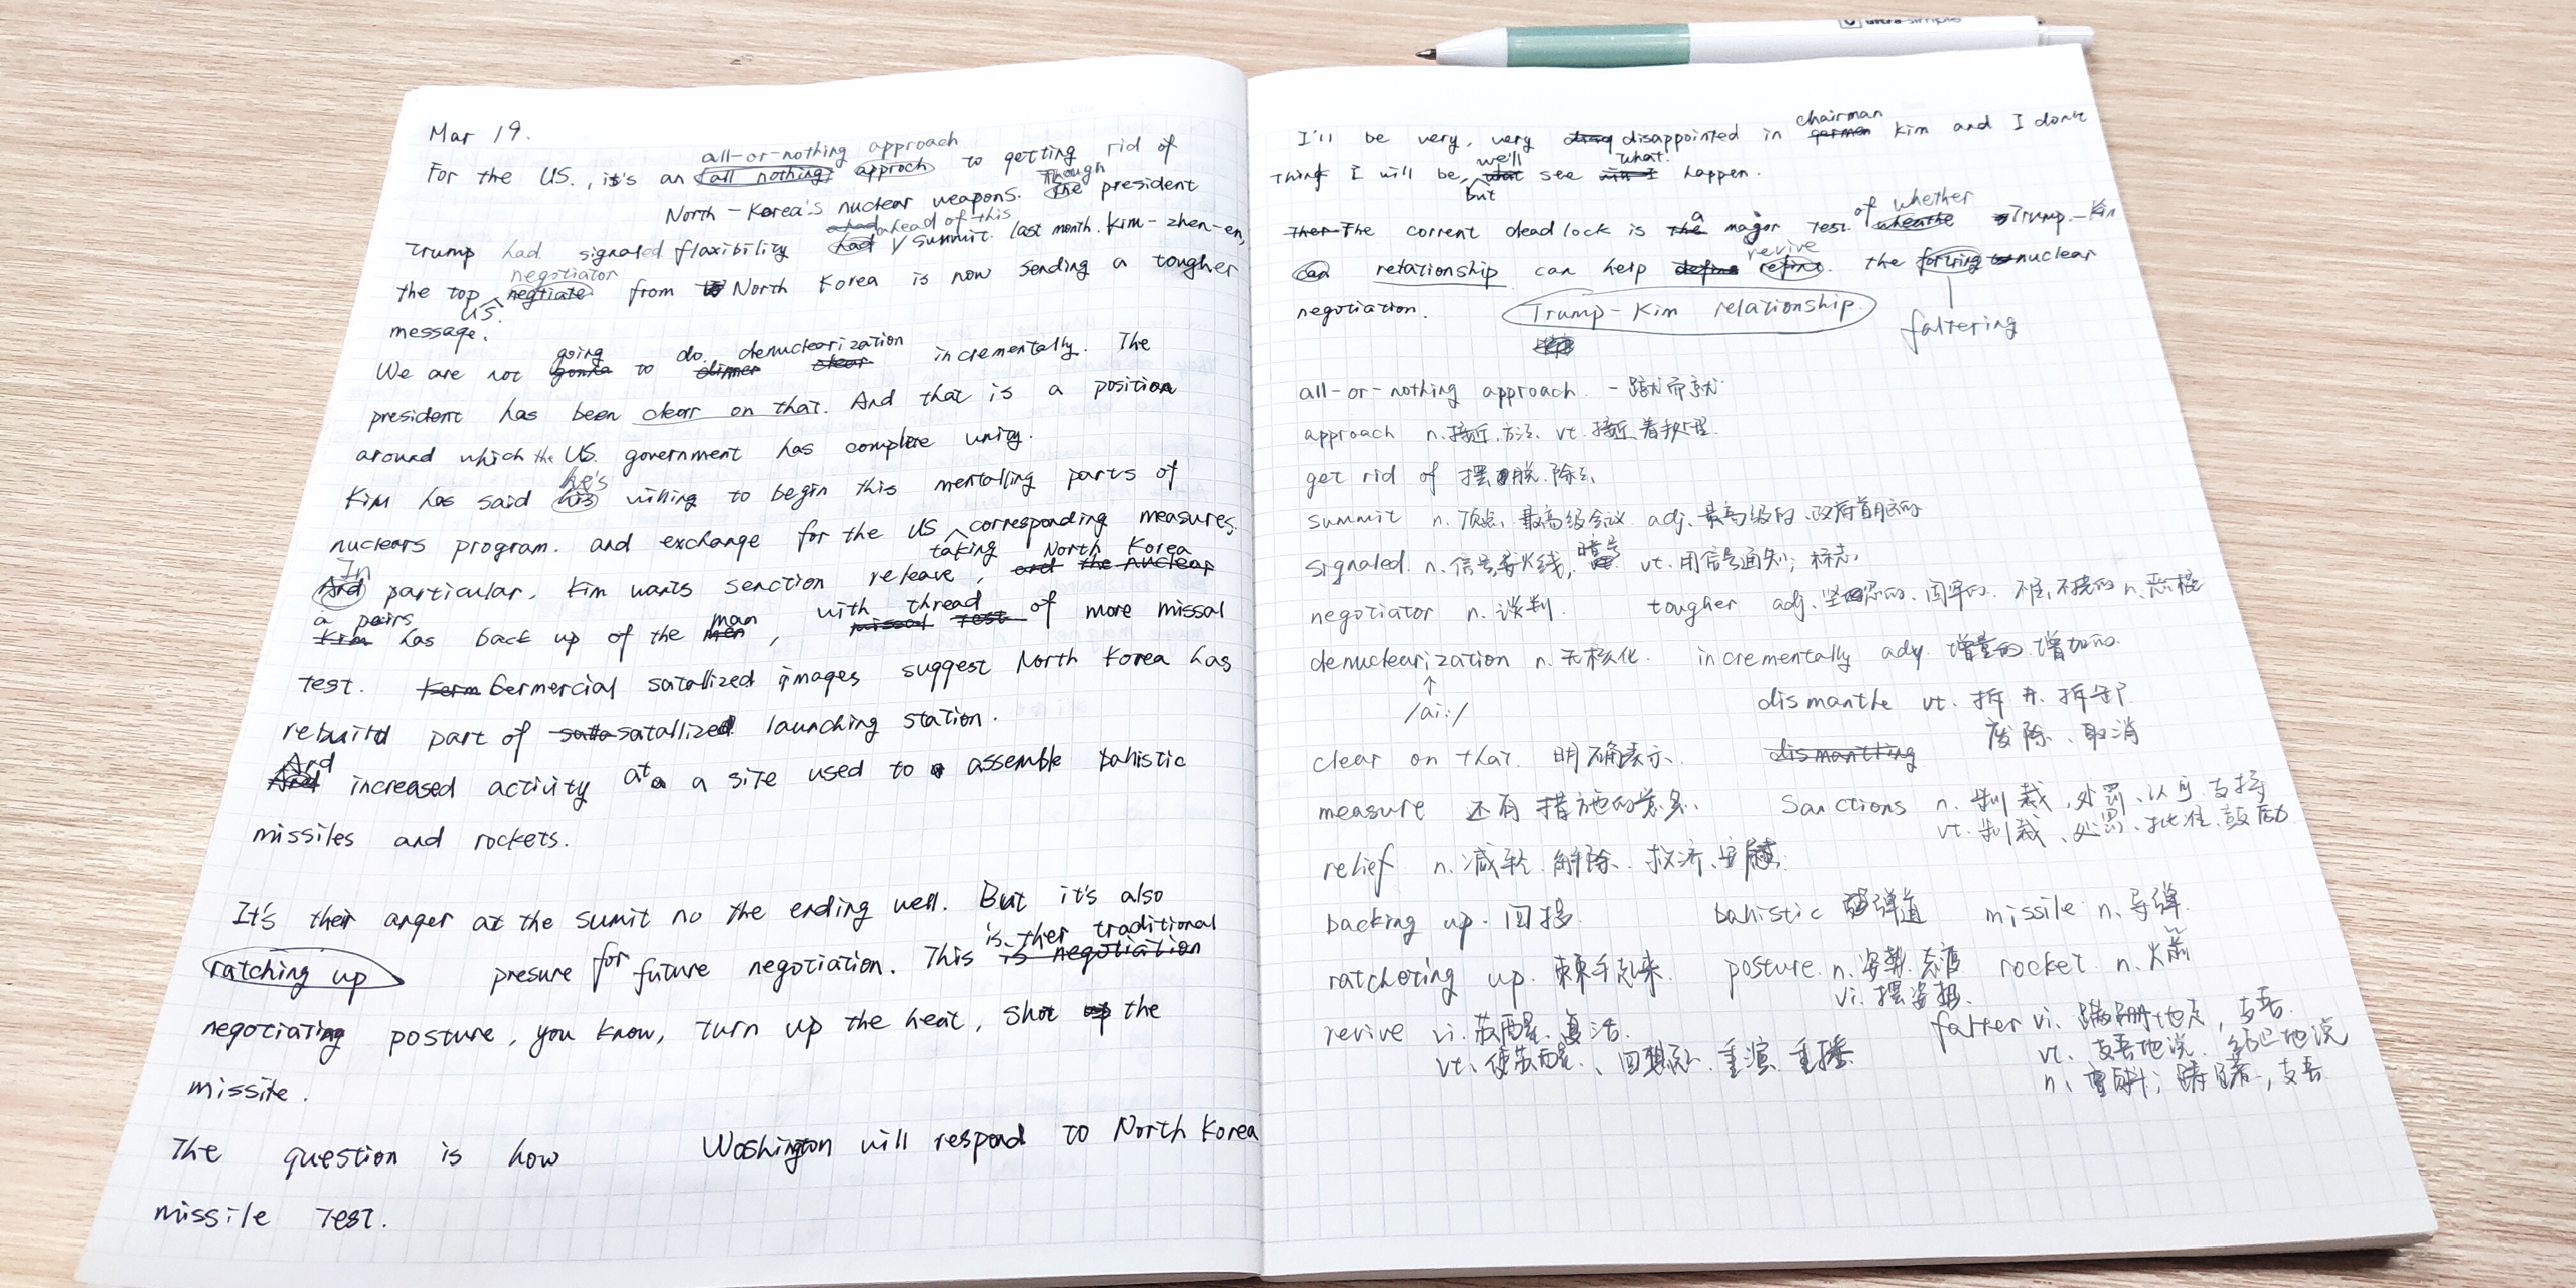 Mar 19.
all-or-nothing approach
For the US., it's an all nothing approch to getting rid of
North-Korea's nuclear weapons. Though the president
ahead of this
Trump had signaled flaxibility had summit last month. Kim-zhen-en,
negotiator
the top negtiate from North Korea is now sending a tougher
US.
message.
going do denuclearization
We are not gonna to dinner clear incrementally. The
president has been clear on that. And that is a position
around which the US. government has complete unity.
he's
Kim has said his willing to begin this mentalling parts of
nuclears program. and exchange for the US corresponding measures.
In taking North Korea
And particular, Kim wants senction releave, and the nuclear
a pairs man with thread
Kim has back up of the men, missal test of more missal
test. Kerm Germercial satallized images suggest North Korea has
rebuild part of satallized launching station.
And
And increased activity at a site used to assemble bahistic
missiles and rockets.
It's their anger at the sumit no the ending well. But it's also
is ther traditional
ratching up presure for future negotiation. This is negotiation
negotiating posture, you know, turn up the heat, shot up the
missile.
The question is how Washington will respond to North Korea
missile test.
chairman
I'll be very, very disappointed in german Kim and I don't
we'll what
think I will be, what see happen.
but
a of whether
The corrent deadlock is the major test wheathe Trump-Kim
revive
can relationship can help define refint the fortring nuclear
negotiation. Trump-Kim relationship
faltering
all-or-nothing approach 一蹴而就
approach n.接近.方法. vt.接近.着手处理.
get rid of 摆脱.除去
summit n.顶点.最高级会议 adj.最高级的.政府首脑的
signaled n.信号.导火线,暗号 vt.用信号通知; 标志.
negotiator n.谈判. tougher adj.坚忍的.固牢的. n.恶棍
denuclearization n.无核化. incrementally adv 增量的.增加的.
↑
/ai:/
dismanthe vt.拆开.拆卸
废除、取消
clear on that. 明确表示. dismantling
measure 还有措施的意思.
sanctions n.制裁,处罚、认可.支持
vt.制裁、处罚、批准.鼓励
relief n.减轻.解除.救济、安慰.
backing up.回撥 bahistic 弹道 missile n.导弹.
ratcheting up. 棘手起来. posture.n.姿势.态度 rocket n.火箭
vi.摆姿势.
revive vi.苏醒、复活.
vt.使苏醒、回想起.重演.重播
falter vi.蹒跚地走,支吾.
vt.支吾地说.结巴地说
n.颤抖; 踌躇,支吾